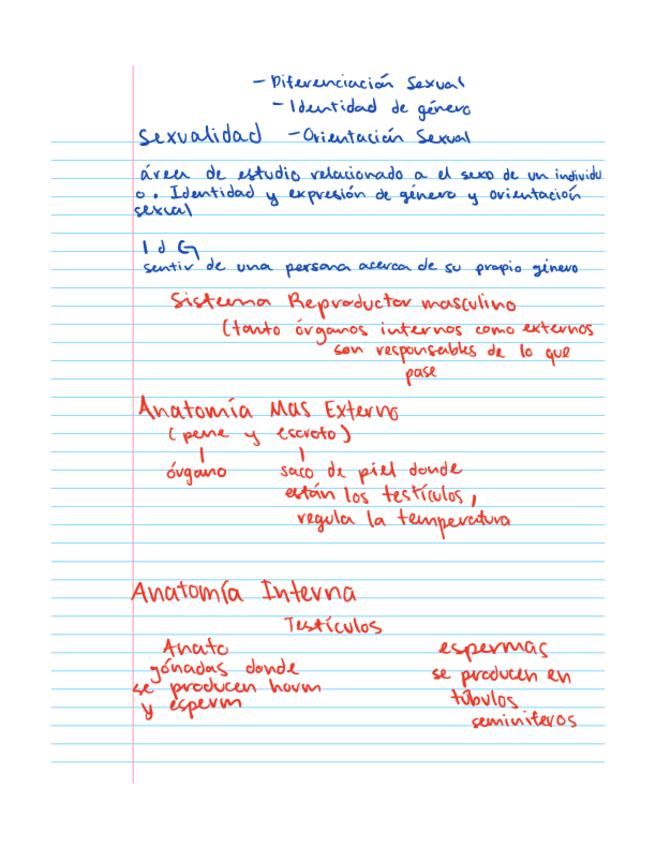 - Diferenciación Sexual
- Identidad de género
Sexualidad - Orientación Sexual
área de estudio relacionado a el sexo de un individu
o. Identidad y expresión de género y orientación
sexual
I d G
sentir de una persona acerca de su propio género
Sistema Reproductor masculino
(tanto órganos internos como externos
son responsables de lo que
pase
Anatomía Mas Externo
(pene y escroto)
órgano saco de piel donde
están los testículos,
regula la temperatura
Anatomía Interna
Testículos
Anato
gónadas donde
se producen horm
y esperm
espermas
se producen en
túbulos
seminiferos